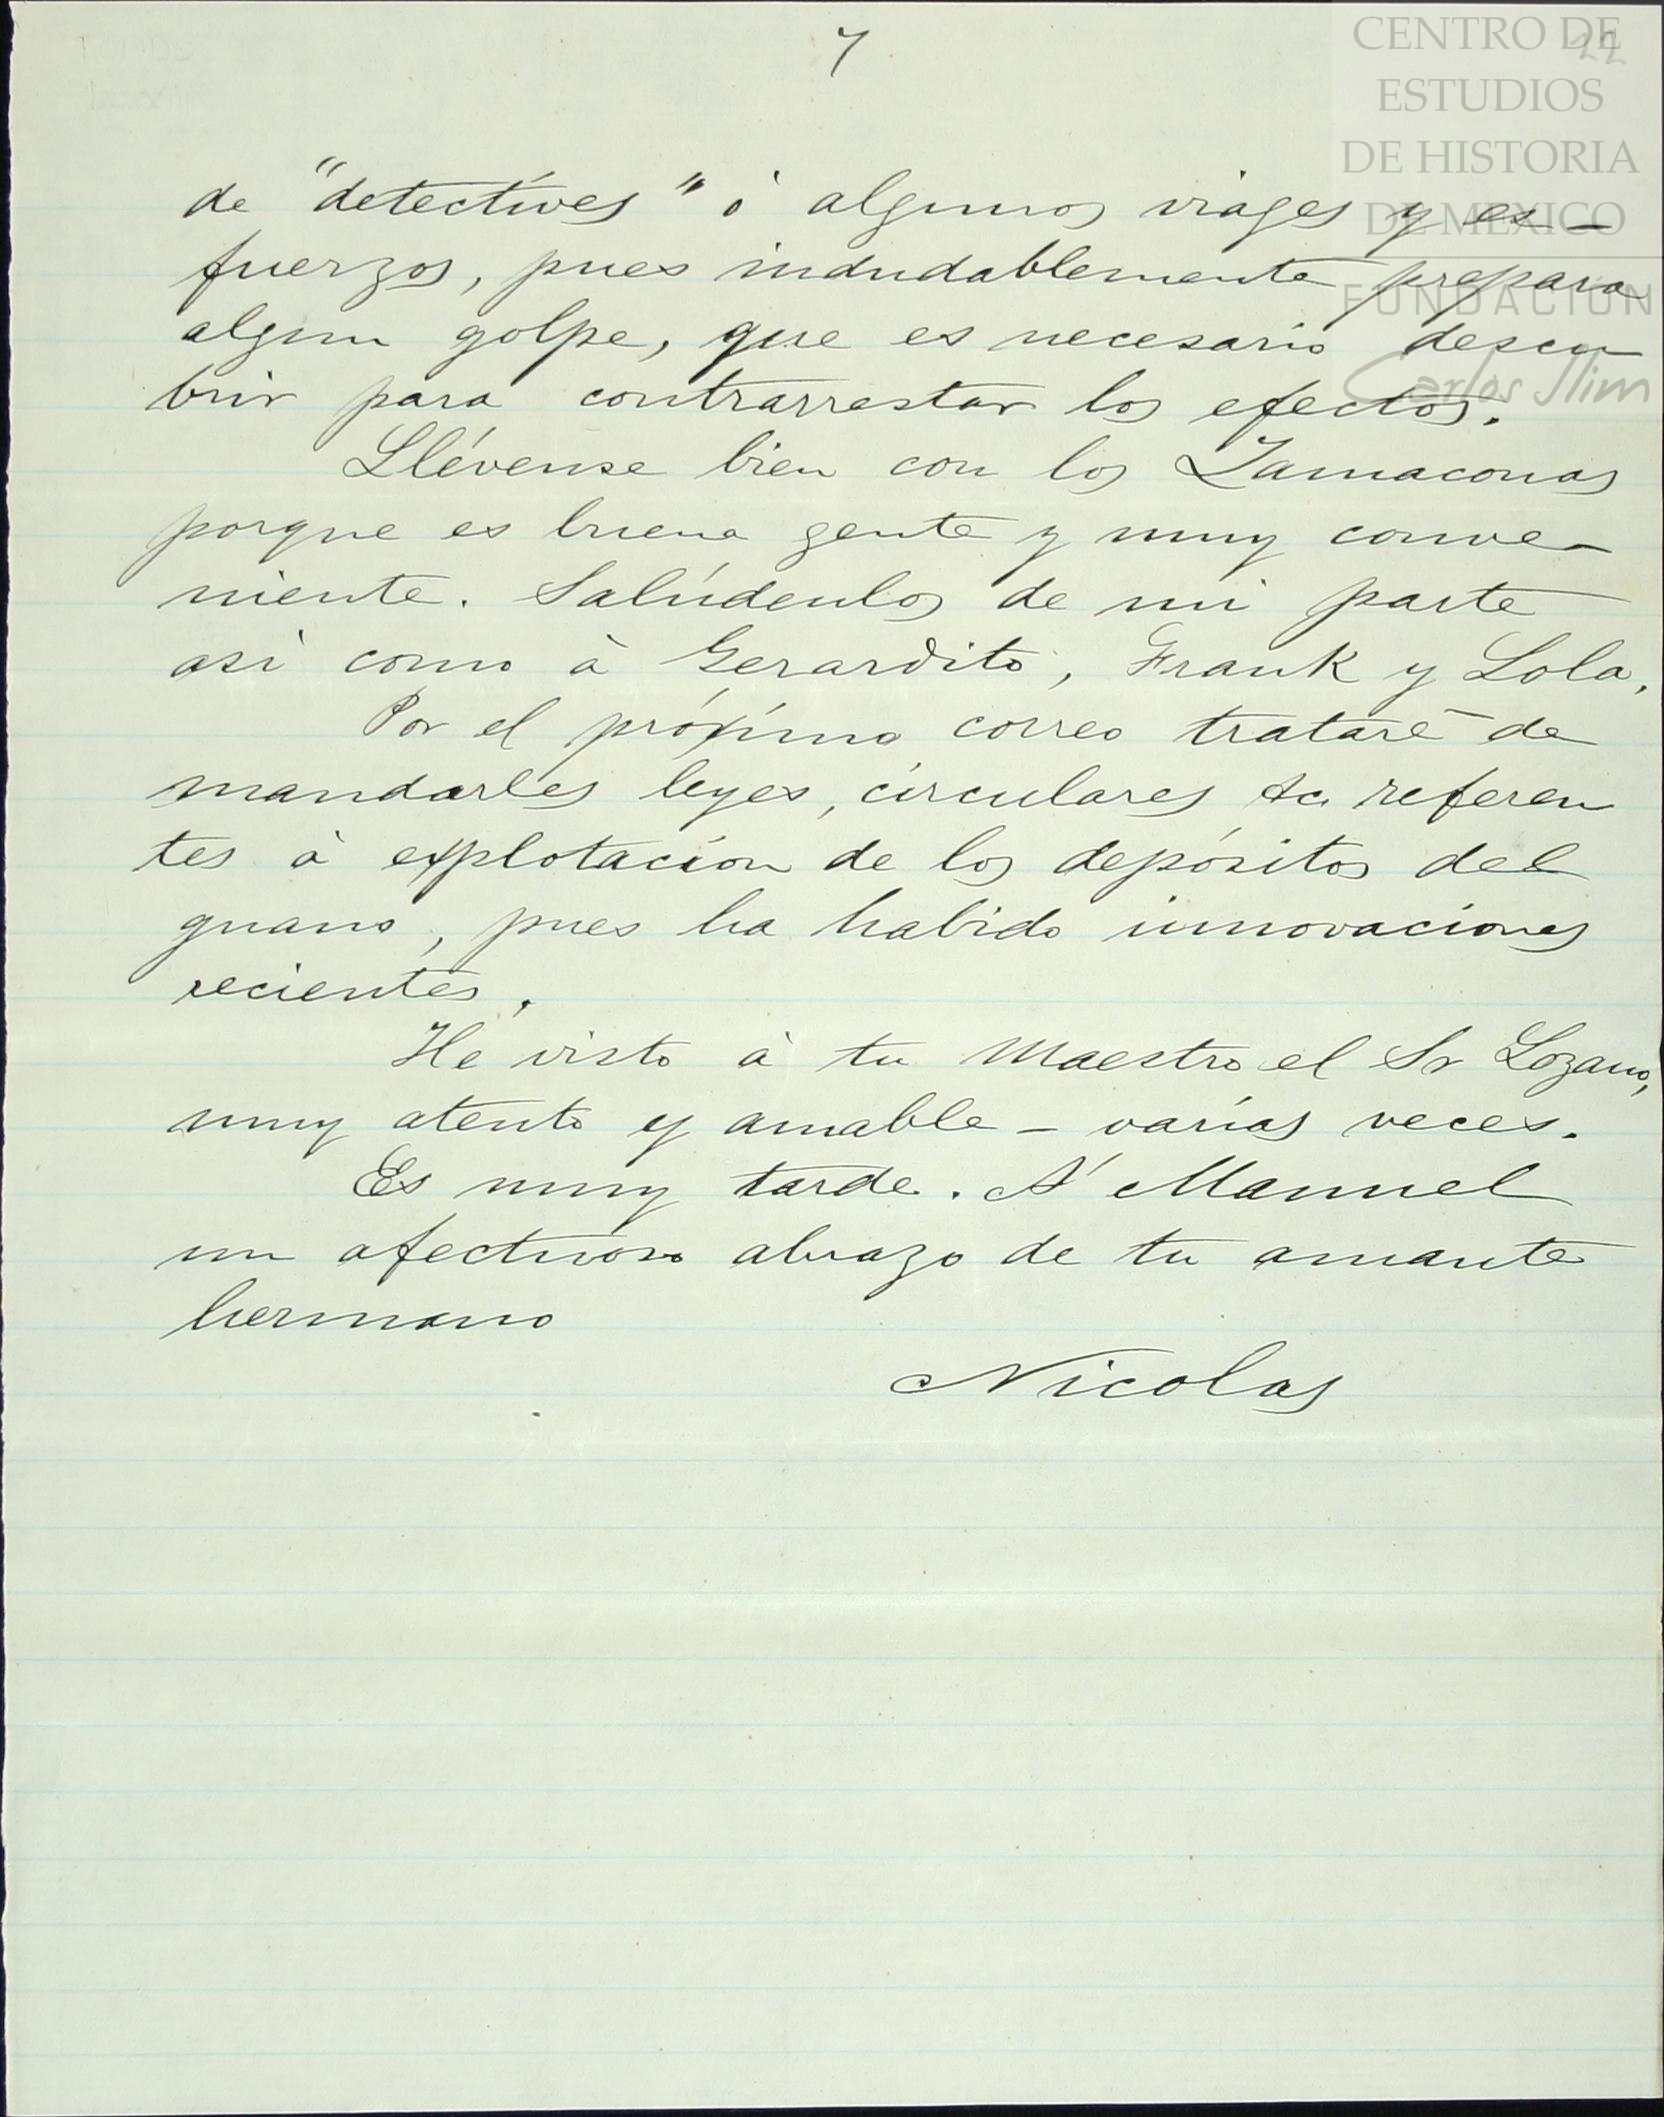 7
22
CENTRO DE
ESTUDIOS
DE HISTORIA
DE MEXICO
FUNDACION
Carlos Slim
de "detectives" ó algunos viages y es-
fuerzos, pues indudablemente prepara
algun golpe, que es necesario descu
brir para contrarrestar los efectos.
Llévense bien con los Zamaconas
porque es buena gente y muy conve-
niente. Salúdenlos de mi parte
asi como à Gerardito, Frank y Lola.
Por el próximo correo trataré de
mandarles leyes, circulares &c referen
tes à explotacion de los depósitos del
guano, pues ha habido innovaciones
recientes.
He visto à tu Maestro el Sr Lozano,
muy atento y amable - varias veces.
Es muy tarde. A' Manuel
un afectuoso abrazo de tu amante
hermano
Nicolas